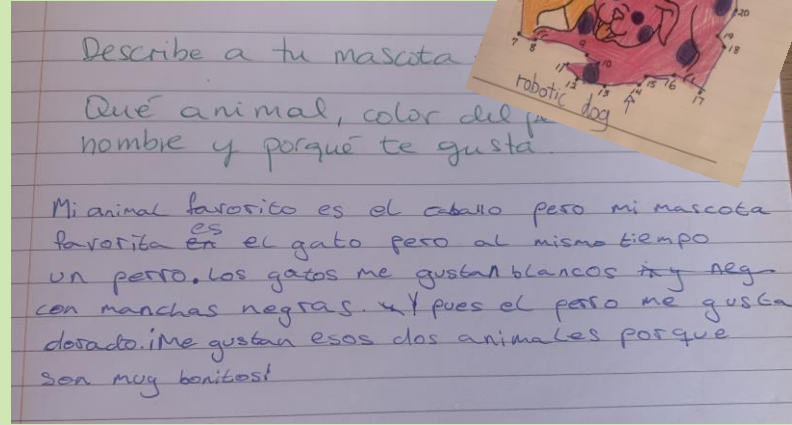 Describe a tu mascota
Qué animal, color del
nombre y porqué te gusta.
Mi animal favorito es el caballo pero mi mascota
favorita es el gato pero al mismo tiempo
un perro. Los gatos me gustan blancos
con manchas negras. Y pues el perro me gusta
dorado. ¡Me gustan esos dos animales porque
son muy bonitos!
7 8 9 10 11 12 13 14 15 16 17 18 19 20
robotic dog